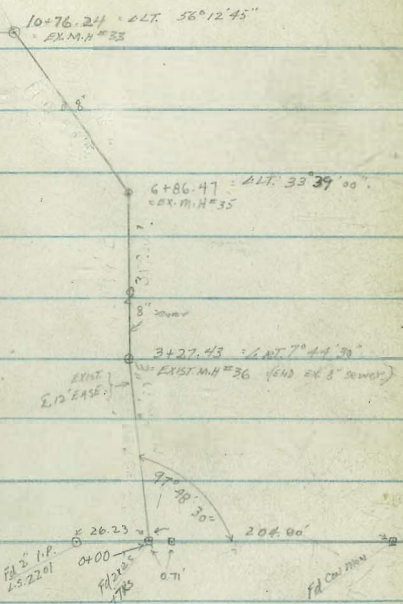 10+76.24 = ΔLT. 56°12'45"
= EX. M.H #33
8"
6+86.47 = ΔLT. 33°39'00".
= EX. M.H #35
8" sewer
3+27.43 = Δ RT. 7°44'30"
= EXIST. M.H #36 (END EX. 8" sewer)
EXIST.
12' EASE.
97°48'30"
26.23
204.00'
0+00
0.71'
Fd 2" I.P.
L.S. 2201
Fd 2x2
Fd Con Mon